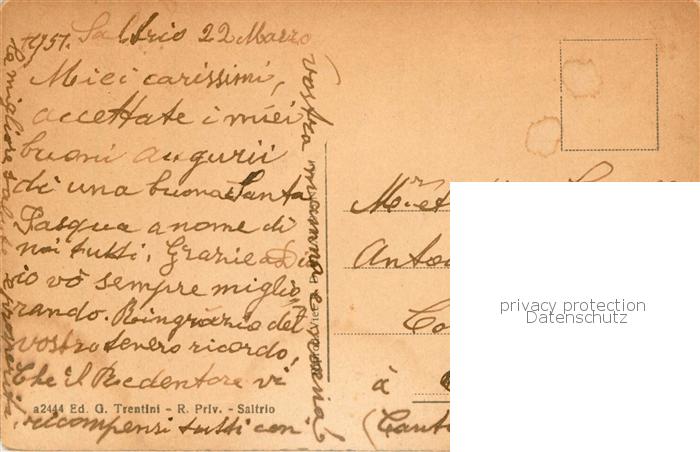 1951. Saltrio 22 Marzo
Miei carissimi,
accettate i miei
buoni Augurii
di una buona Santa
Pasqua a nome di
noi tutti. Grazie a Dio
io vò sempre miglio
rando. Ringrazio del
vostro tenero ricordo,
Che il Redentore vi
ricompensi tutti con
la migliore salute e prosperità.
Vostra mamma e nonna
a2444 Ed. G. Trentini - R. Priv. - Saltrio
Mr et
à
(Cant
privacy protection
Datenschutz